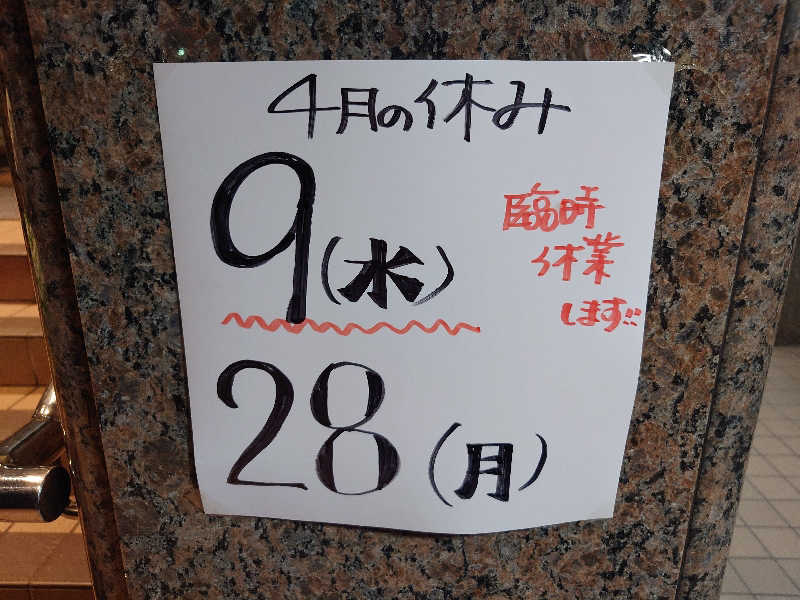 4月の休み
9(水)
臨時
休業
します!!
28(月)